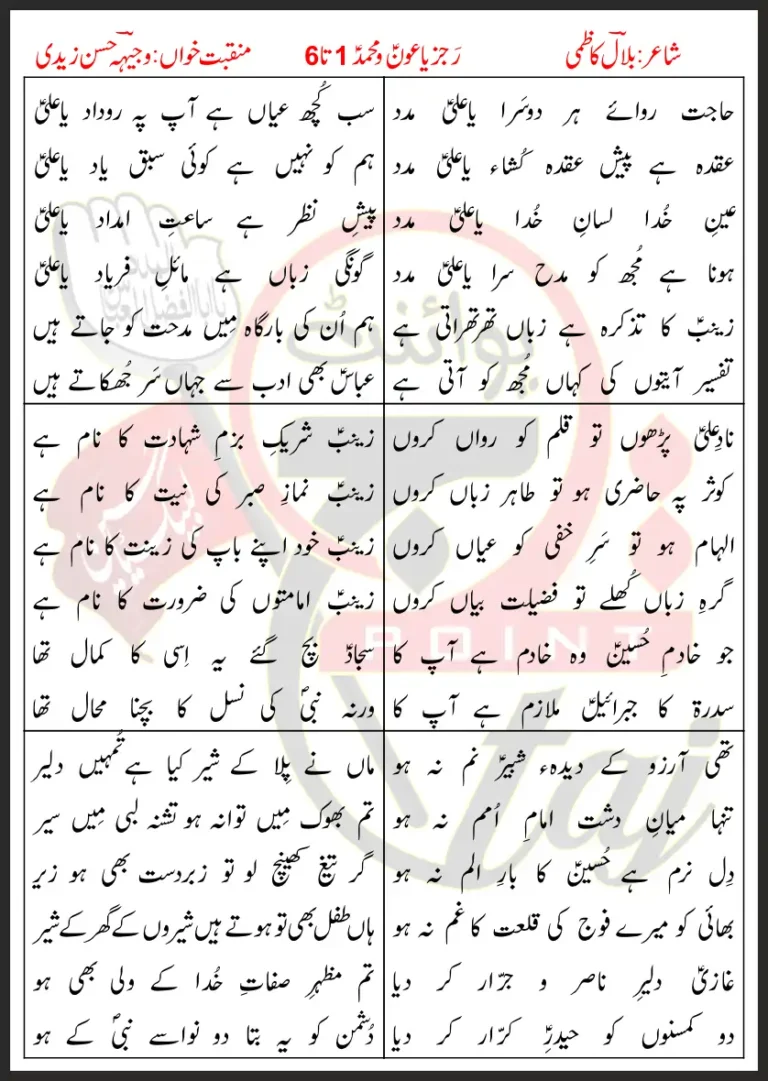 شاعر: بلال کاظمی
رَجز یا عونؑ و محمدؑ 1 تا 6
منقبت خواں: وجیہہ حسن زیدی
حاجت روائے ہر دوسَرا یاعلیؑ مدد
عقدہ ہے پیش عقدہ کُشاء یاعلیؑ مدد
عینِ خُدا لسانِ خُدا یاعلیؑ مدد
ہونا ہے مُجھ کو مدح سرا یاعلیؑ مدد
زینبؑ کا تذکرہ ہے زباں تھرتھراتی ہے
تفسیر آیتوں کی کہاں مُجھ کو آتی ہے
سب کُچھ عیاں ہے آپ پہ روداد یاعلیؑ
ہم کو نہیں ہے کوئی سبق یاد یاعلیؑ
پیشِ نظر ہے ساعتِ امداد یاعلیؑ
گونگی زباں ہے مائلِ فریاد یاعلیؑ
ہم اُن کی بارگاہ مِیں مدحت کو جاتے ہیں
عباسؑ بھی ادب سے جہاں سَر جُھکاتے ہیں
نادِعلیؑ پڑھوں تو قلم کو رواں کروں
کوثر پہ حاضری ہو تو طاہر زباں کروں
الہام ہو تو سَرِ خفی کو عیاں کروں
گرہِ زباں کُھلے تو فضیلت بیاں کروں
جو خادمِ حُسینؑ وہ خادم ہے آپ کا
سدرۃ کا جبرائیلؑ ملازم ہے آپ کا
زینبؑ شریکِ بزمِ شہادت کا نام ہے
زینبؑ نمازِ صبر کی نیت کا نام ہے
زینبؑ خود اپنے باپ کی زینت کا نام ہے
زینبؑ امامتوں کی ضرورت کا نام ہے
سجادؑ بچ گئے یہ اِسی کا کمال تھا
ورنہ نبیؐ کی نسل کا بچنا محال تھا
تھی آرزو کے دیدہء شبیرؑ نم نہ ہو
تنہا میانِ دشت امامِ اُمم نہ ہو
دِل نرم ہے حُسینؑ کا بارِ الم نہ ہو
بھائی کو میرے فوج کی قلعت کا غم نہ ہو
غازیؑ دلیرِ ناصر و جرّار کر دیا
دو کمسنوں کو حیدرِؑ کرّار کر دیا
ماں نے پِلا کے شیر کیا ہے تُمہیں دلیر
تم بھوک مِیں توانہ ہو تشنہ لبی مِیں سیر
گر تیغ کھینچ لو تو زبردست بھی ہو زیر
ہاں طفل بھی تو ہوتے ہیں شیروں کے گھر کے شیر
تم مظہرِ صفاتِ خُدا کے ولی بھی ہو
دُشمن کو یہ بتا دو نواسے نبیؐ کے ہو
پوائنٹ
POINT
taj